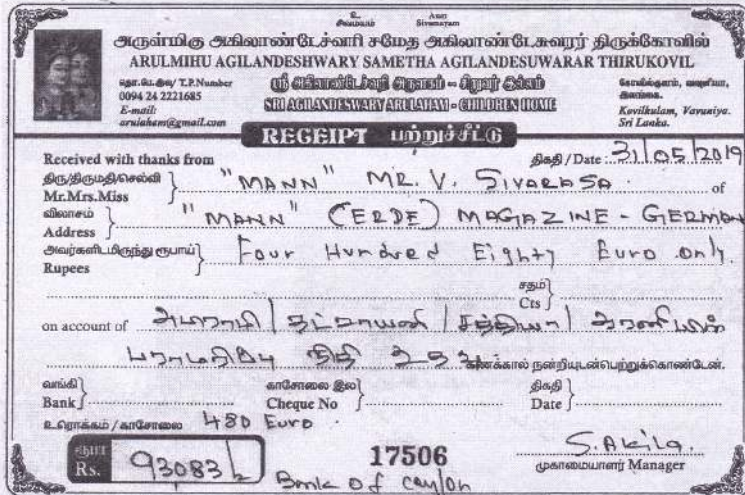 உ
சிவமயம்
Sivamayam
அருள்மிகு அகிலாண்டேச்வரி சமேத அகிலாண்டேசுவரர் திருக்கோவில்
ARULMIHU AGILANDESHWARY SAMETHA AGILANDESUWARAR THIRUKOVIL
தொ.பே.இல/ T.P.Number
0094 24 2221685
E-mail:
arulaham@gmail.com
ஸ்ரீ அகிலாண்டேச்வரி அருளகம் - சிறுவர் இல்லம்
SRI AGILANDESWARY ARULAHAM - CHILDREN HOME
கோவில்குளம், வவுனியா,
இலங்கை.
Kovilkulam, Vavuniya.
Sri Lanka.
RECEIPT பற்றுச்சீட்டு
Received with thanks from
திகதி / Date : 31/05/2019
திரு/திருமதி/செல்வி
Mr.Mrs.Miss "MANN" MR. V. SIVARASA of
விலாசம்
Address "MANN" (ERDE) MAGAZINE - GERMAN
அவர்களிடமிருந்து ரூபாய்
Rupees Four Hundred Eighty Euro only.
சதம்
Cts
on account of
பராமரிப்பு நிதி கணக்கால் நன்றியுடன்பெற்றுக்கொண்டேன்.
வங்கி
Bank
காசோலை இல
Cheque No
திகதி
Date
உரொக்கம் / காசோலை 480 Euro
ரூபா
Rs. 93083/-
17506
Bank of ceylon
S. Akila.
முகாமையாளர் Manager